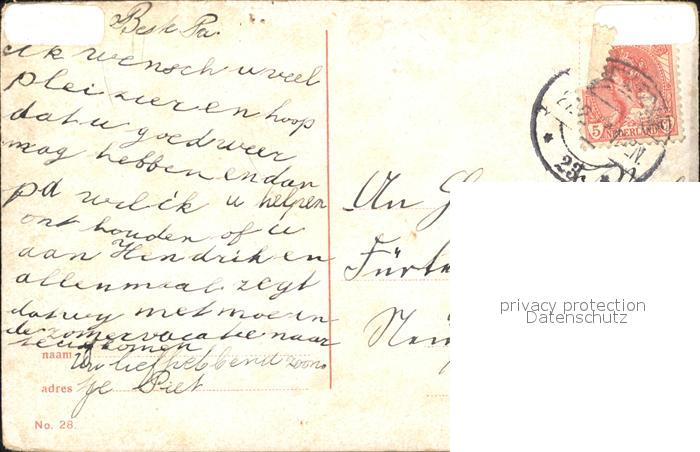 Beste Pa.
ik wensch u veel
pleizier en hoop
dat u goed weer
mag hebben en dan
pa wil ik u helpen
onthouden of u
aan Hendrik en
allemaal zegt
dat wy met moe in
de zomervacatie naar
naam Uw liefhebbend zoon
adres je Piet
No. 28.
An
Fürt
5 NEDERLAND
23
privacy protection
Datenschutz